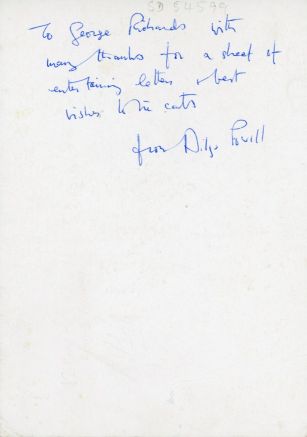 SD 54599
To George Richards with
many thanks for a sheaf of
entertaining letters & best
wishes to the cats
from Dilys Powell